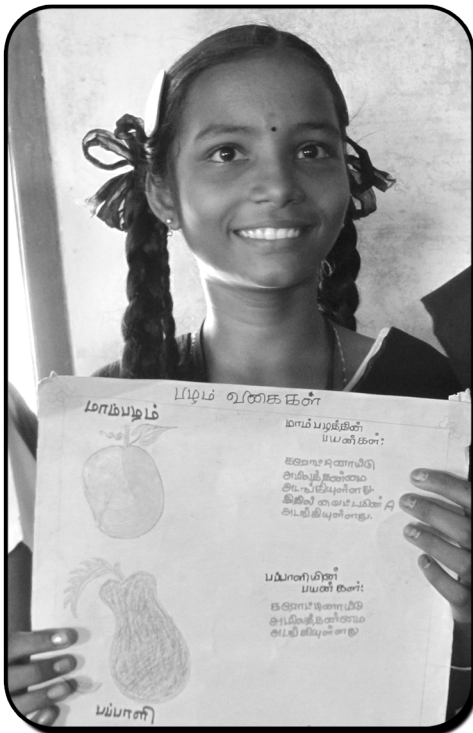 பழம் வகைகள்
மாம்பழம்
மாம்பழத்தின்
பயன்கள்:
கரோட்டினாய்டு
அமிலத்தன்மை
அடங்கியுள்ளது
இதில் வைட்டமின் A
அடங்கியுள்ளது.
பப்பாளியின்
பயன்கள்:
கரோட்டினாய்டு
அமிலத்தன்மை
அடங்கியுள்ளது
பப்பாளி